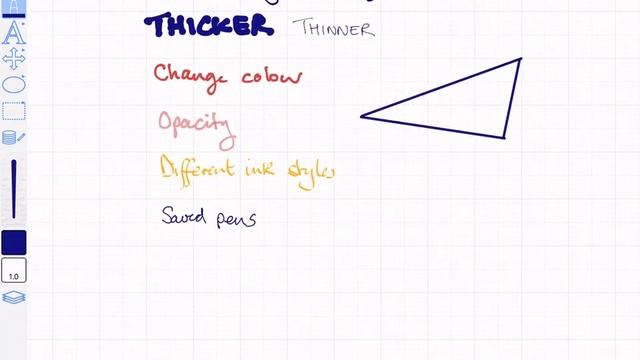 THICKER THINNER
Change colour
Opacity
Different ink styles
Saved pens
1.0